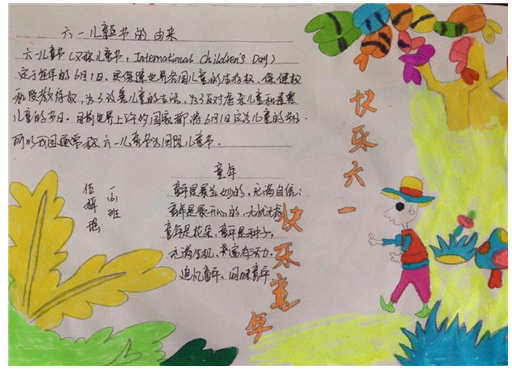 六一儿童节的由来
六一儿童节(又称儿童节,International Children's Day)
定于每年的6月1日。为保障世界各国儿童的生存权、保健权
和受教育权,为了改善儿童的生活,为了反对虐杀儿童和毒害
儿童的节日。目前世界上许多的国家都将6月1日定为儿童的节日。
所以我国通常称六一儿童节为国际儿童节。
快乐六一
童年
童年是 的,充满自信;
童年是最开心的,无忧无虑
童年是花朵,童年是种子,
充满生机,来富有活力。
追忆童年,回味童年
一(4)班
快乐童年